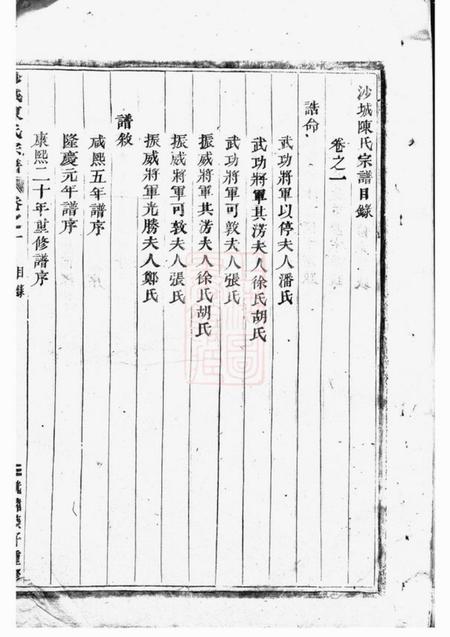 沙城陳氏宗譜目錄
卷之一
誥命
武功將軍以停夫人潘氏
武功將軍其滂夫人徐氏胡氏
武功將軍可教夫人張氏
振威將軍其滂夫人徐氏胡氏
振威將軍可教夫人張氏
振威將軍光勝夫人鄭氏
譜敘
咸熙五年譜序
隆慶元年譜序
康熙二十年重修譜序
陳氏宗譜 卷之一 目錄